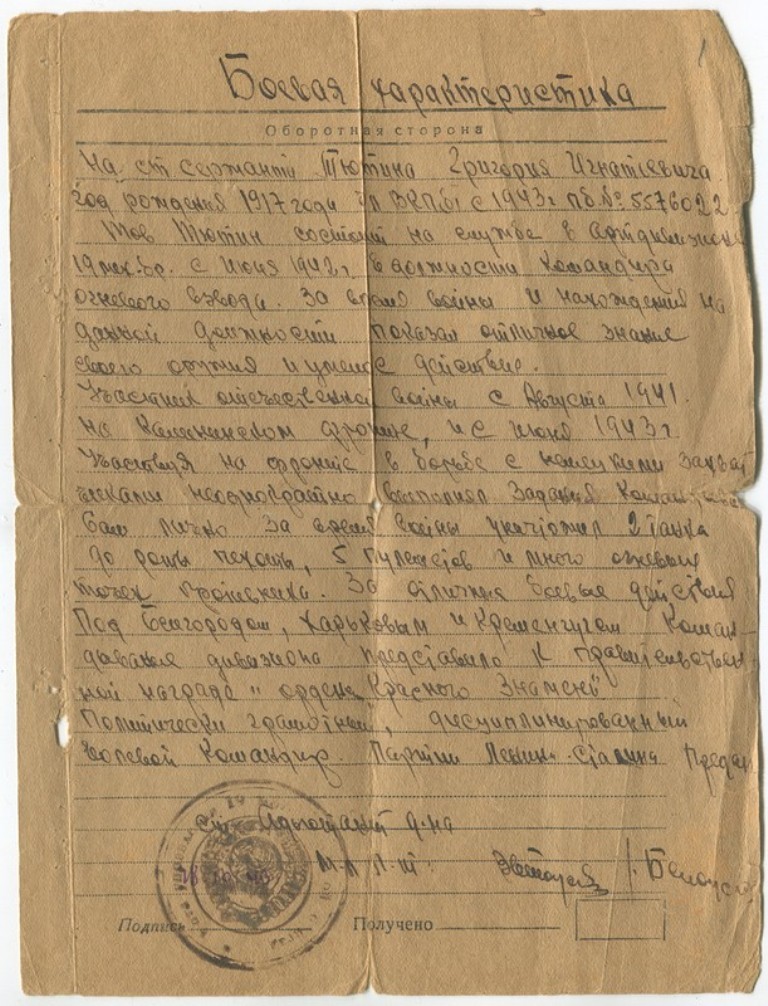 Боевая характеристика
Оборотная сторона
На ст сержанта Тютина Григория Игнатьевича
год рождения 1917 года чл ВКП(б) с 1943г п.б. № 5576022
Тов Тютин состоит на службе в артдивизионе
19 мех. бр. с Июня 1942 г. в должности Командира
огневого взвода. За время войны и нахождения на
данной должности показал отличное знание
своего оружия и умелое действие.
Участник отечественной войны с Августа 1941.
на Калининском фронте, и с июня 1943 г.
Участвуя на фронте в борьбе с немецкими захват
чиками неоднократно выполнял задания
Сам лично за время войны уничтожил 2 танка
до роты пехоты, 5 пулеметов и много огневых
точек противника. За отличные боевые действия
Под Белгородом, Харьковым и Кременчугом Коман-
дование дивизиона представило к правительствен
ной награде "ордена Красного Знамени"
Политически грамотный, дисциплинированный
Волевой Командир. Партии Ленина-Сталина предан
ст Адъютант д-на
Подпись
Получено